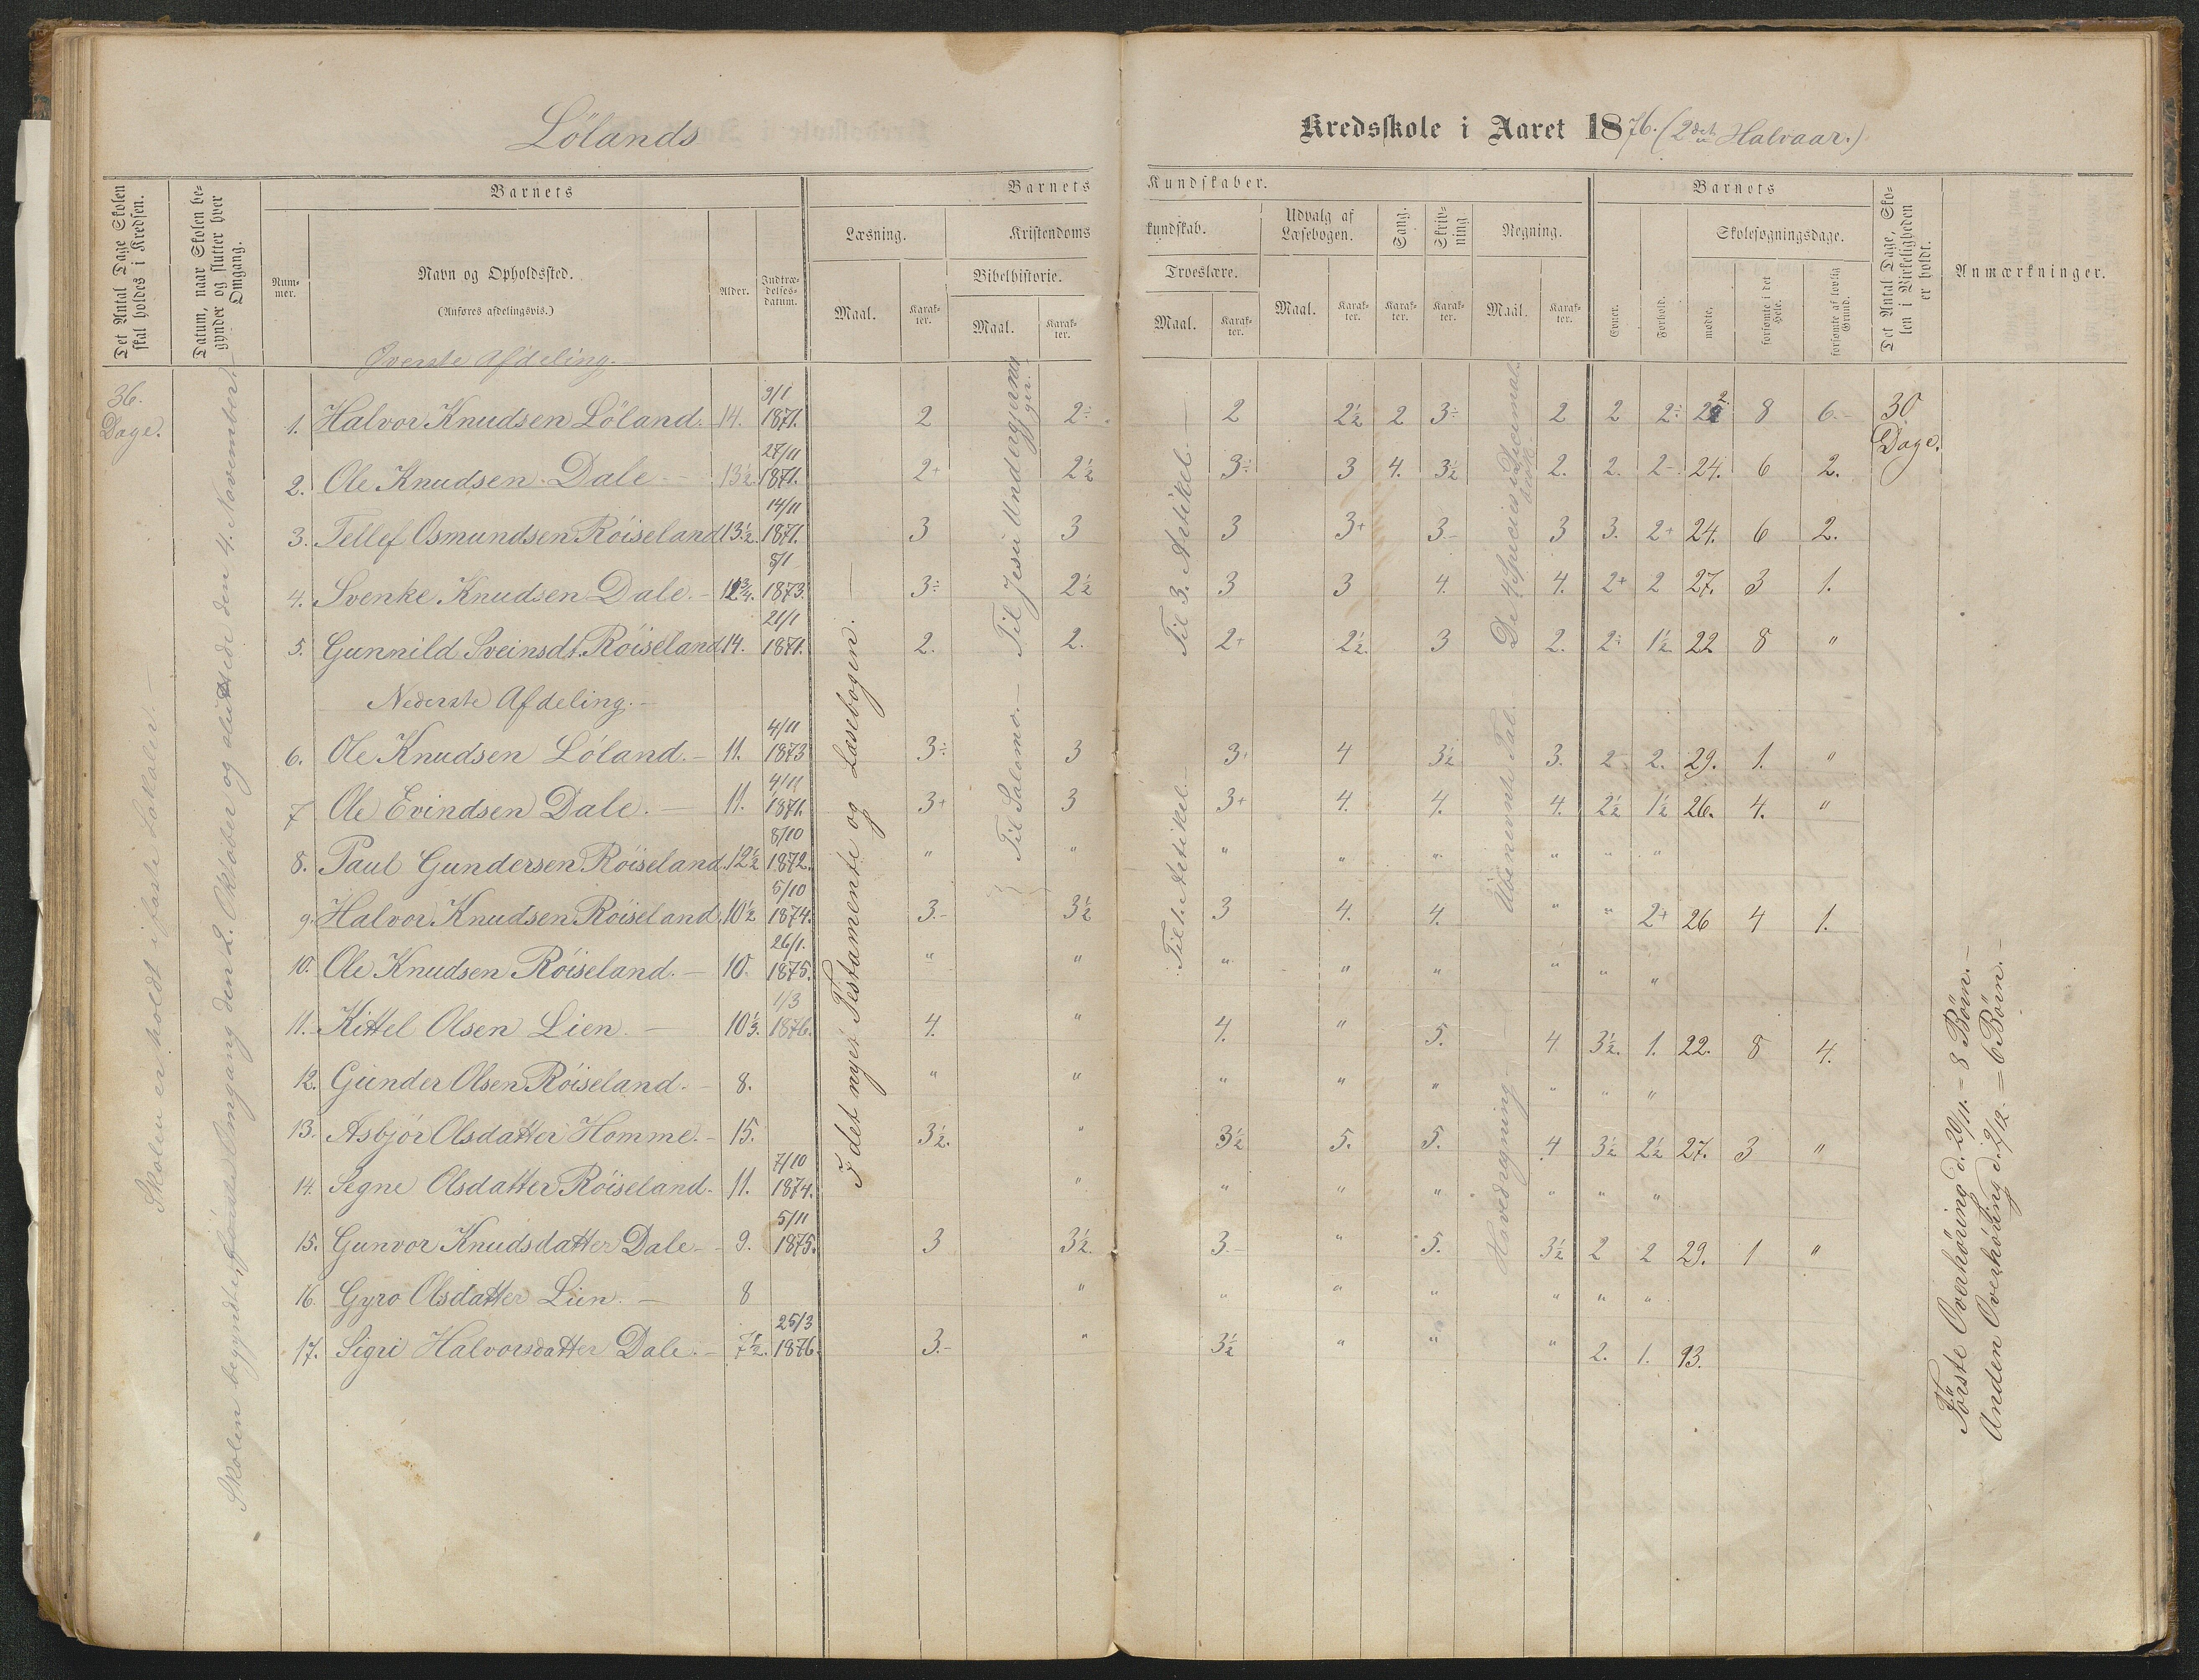 Lölands
Kredsskole i Aaret 1876. (2det Halvaar.)
Det Antal Dage Skolen skal holdes i Kredsen.
Datum, naar Skolen begynder og slutter hver Omgang.
Barnets
Nummer.
Navn og Opholdssted.
(Anføres afdelingsvis.)
Alder.
Indtrædelsesdatum.
Barnets Kundskaber.
Læsning.
Maal.
Karakter.
Kristendomskundskab.
Bibelhistorie.
Maal.
Karakter.
Troeslære.
Maal.
Karakter.
Udvalg af Læsebogen.
Maal.
Karakter.
Sang.
Karakter.
Skrivning
Karakter.
Regning.
Maal.
Karakter.
Barnets
Evner.
Forhold.
Skolesøgningsdage.
mødte.
forsømte i det Hele.
forsømte af lovlig Grund.
Det Antal Dage, Skolen i Virkeligheden er holdt.
Anmærkninger.
36. Dage.
Skolen er holdt i faste Lokaler.
Skolen begyndte Omgang den 2. Oktober og sluttede den 4. November.
Överste Afdeling.
1. Halvor Knudsen Löland. 14. 9/1 1871. 2 2÷ 2 2½ 2 3÷ 2 2 2÷ 22 8 6. 30 Dage.
2. Ole Knudsen Dale 13½. 27/11 1871. 2+ 2½ 3÷ 3 4. 3½ 2. 2. 2- 24. 6 2.
3. Tellef Osmundsen Röiseland 13½. 14/11 1871. 3 3 3 3+ 3- 3 3. 2+ 24. 6 2.
4. Svenke Knudsen Dale. 12¾. 8/1 1873. 3÷ 2½ 3 3 4. 4. 2+ 2 27. 3 1.
5. Gunnild Sveinsdt. Röiseland 14. 21/1 1871. 2. 2. 2+ 2½. 3 2. 2÷ 1½ 22 8 "
Nederste Afdeling.
6. Ole Knudsen Löland. 11. 4/11 1873 3÷ 3 3+ 4 3½ 3. 2- 2. 29. 1. "
7 Ole Evindsen Dale. 11. 4/11 1871. 3+ 3 3+ 4. 4. 4. 2½ 1½ 26. 4. "
8. Paul Gundersen Röiseland. 12½ 8/10 1872. " " " " " " " "
9. Halvor Knudsen Röiseland. 10½ 5/10 1874. 3.- 3½ 3 4. 4. " " 2+ 26 4 1.
10. Ole Knudsen Röiseland. 10. 26/1. 1875. " " " " " " " "
11. Kittel Olsen Lien. 10⅓. 1/3 1876. 4. " 4. " 5. 4 3½. 1. 22. 8 4.
12. Gunder Olsen Röiseland. 8. " " " " " " " "
13. Asbjör Olsdatter Homme. 15. 3½. " 3½ 5. 5. 4 3½ 2½ 27. 3 "
14. Segne Olsdatter Röiseland. 11. 7/10 1874. " " " " " " "
15. Gunvor Knudsdatter Dale 9. 5/11 1875. 3 3½. 3.- " 5. 3½ 2 2 29. 1 "
16. Gyro Olsdatter Lien. 8 " " " " " " "
17. Sigri Halvorsdatter Dale. 7½. 25/3 1876. 3.- " 3½ " " " 2. 1. 13.
I det nye Testamente og Læsebogen.
Til Jesu Undergjerninger.
Til Salomo.
Til 3. Artikel.
Til 1. Artikel.
De 4 Species i Decimalbrök.
Ubenævnte Tal.
Hovedregning
Første Overhøring d. 20/11. = 8 Börn.
Anden Overhöring d. 2/12. = 6 Börn.